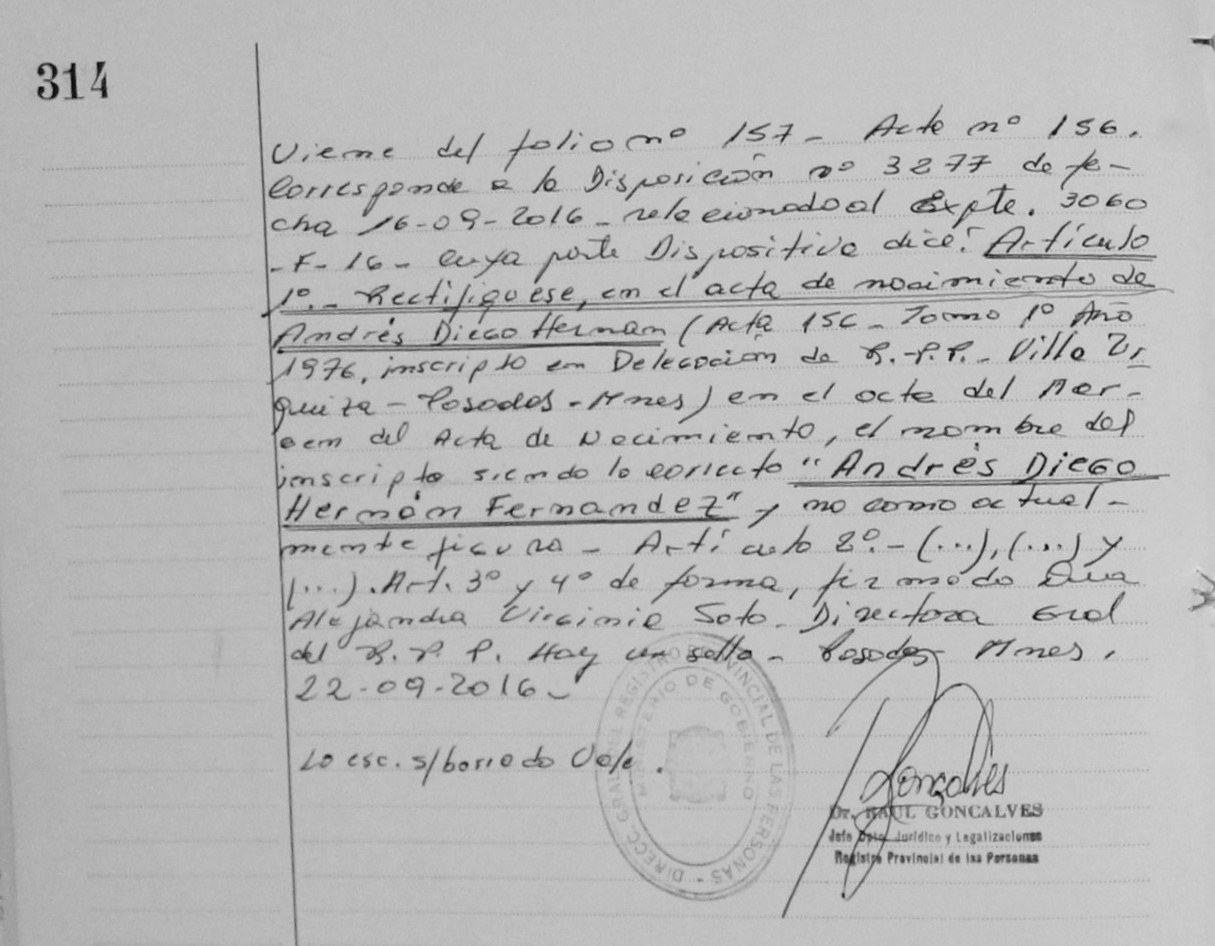 314
Viene del folio nº 157- Acta nº 156.
Corresponde a la Disposición nº 3277 de fe-
cha 16-09-2016- relacionado al Expte. 3060
-F-16- cuya parte Dispositiva dice: Artículo
1º.- Rectifíquese, en el acta de nacimiento de
Andrés Diego Hernán (Acta 156- Tomo 1º Año
1976, inscripto en Delegación de R.-P.P.- Villa Ur
quiza- Posadas- Mnes) en el acta del Mar-
gen del Acta de Nacimiento, el nombre del
inscripto siendo lo correcto "Andrés Diego
Hernán Fernandez" y no como actual-
mente figura- Artículo 2º.- (...), (...) y
(...). Art. 3º y 4º de forma, firmado Dra
Alejandra Virginia Soto- Directora Gral
del R. P. P. Hay un sello- Posadas Mnes.
22-09-2016-
Lo esc. s/borrado Vale.
DIRECC. GRAL. DEL REGISTRO PROVINCIAL DE LAS PERSONAS -
MINISTERIO DE GOBIERNO
Goncalves
Dr. RAUL GONCALVES
Jefe Dpto. Jurídico y Legalizaciones
Registro Provincial de las Personas